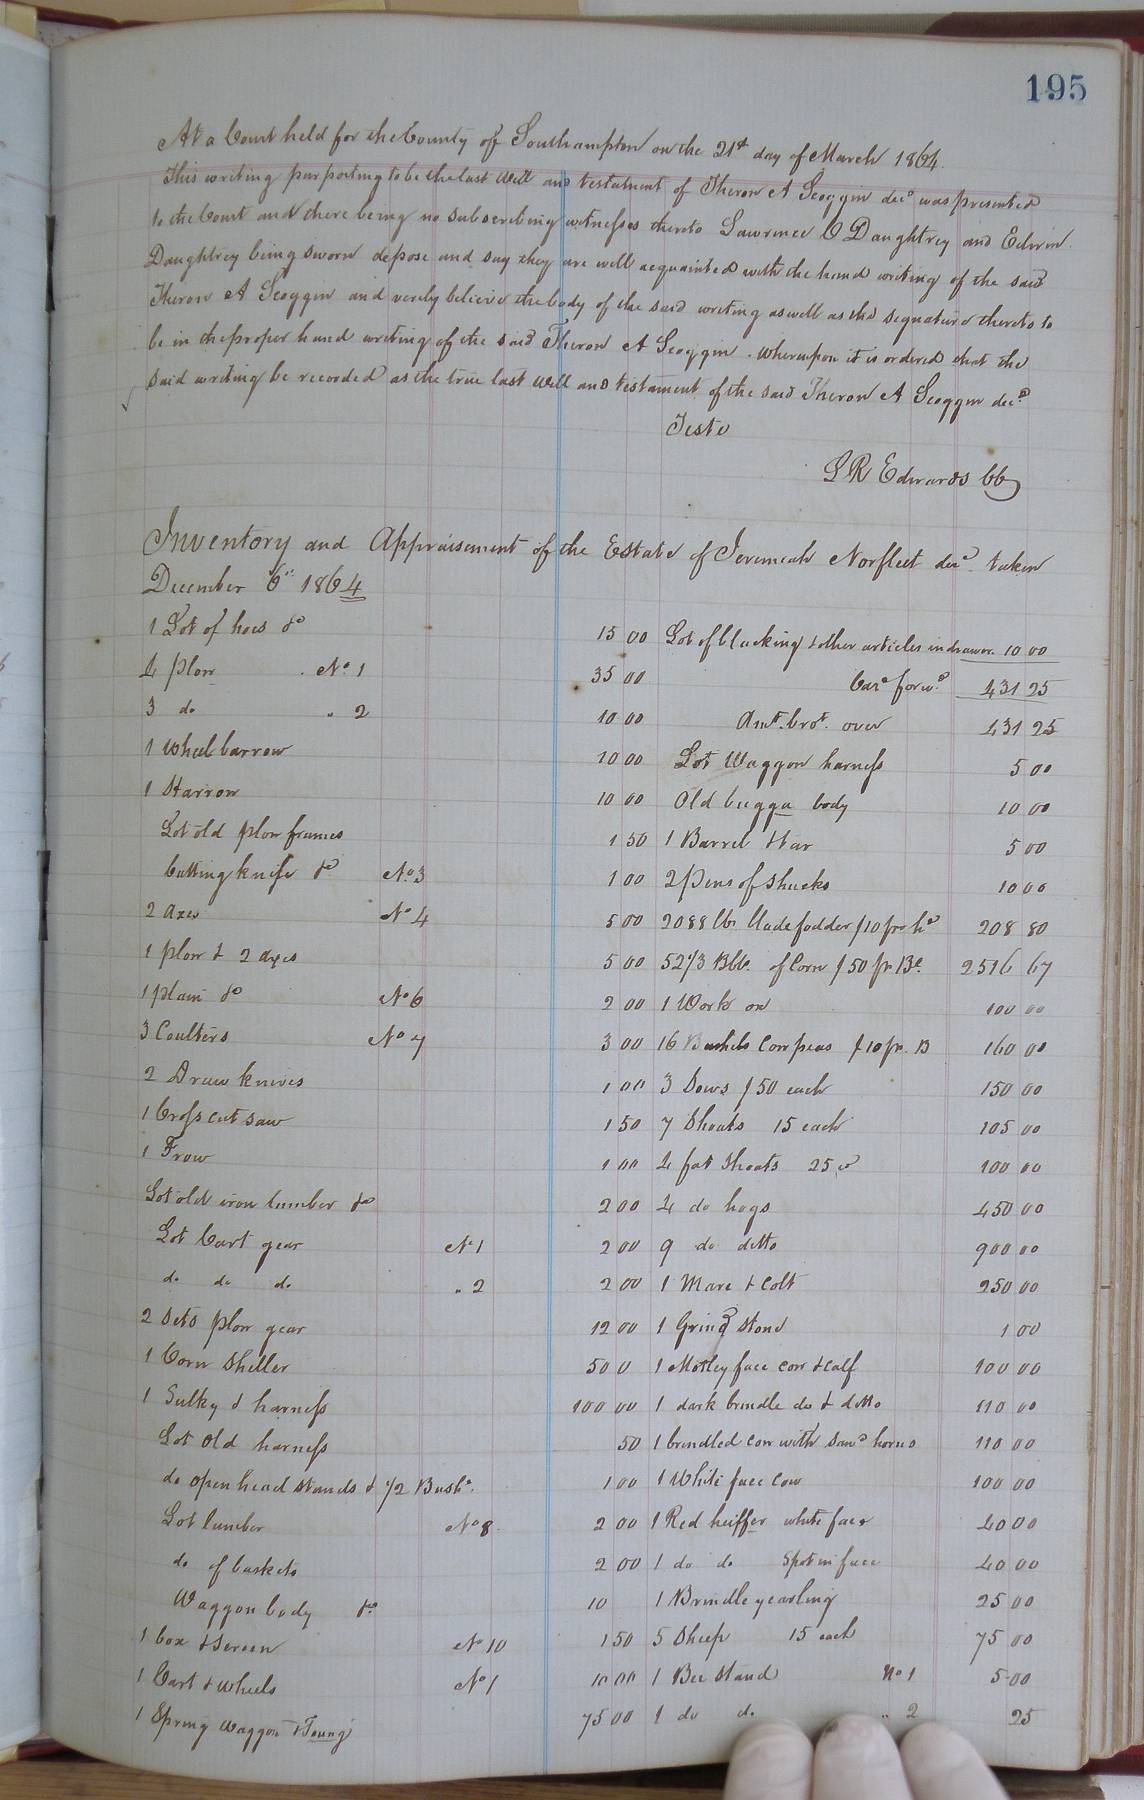 195
At a Court held for the County of Southampton on the 21st day of March 1864
This writing purporting to be the last Will and testament of Theron A Scoggin decd was presented
to the Court and there being no subscribing witnesses thereto Lawrence O Daughtrey and Edwin
Daughtrey being sworn depose and say they are well acquainted with the hand writing of the said
Theron A Scoggin and verily believe the body of the said writing as well as the signature thereto to
be in the proper hand writing of the said Theron A Scoggin. Whereupon it is ordered that the
said writing be recorded as the true last Will and testament of the said Theron A Scoggin decd
Teste
L R Edwards CC
Inventory and Appraisement of the Estate of Jeremiah Norfleet decd taken
December 6th 1864
1 Lot of hoes &c 15 00
4 plow No 1 35 00
3 do " 2 10 00
1 Wheel barrow 10 00
1 Harrow 10 00
Lot old plow frames 1 50
Cutting knife &c No 3 1 00
2 Axes No 4 5 00
1 plow & 2 axes 5 00
1 plain &c No 6 2 00
3 Coulters No 7 3 00
2 Draw knives 1 00
1 Cross cut saw 1 50
1 Frow 1 00
Lot old iron lumber &c 2 00
Lot Cart gear No 1 2 00
do do do " 2 2 00
2 Sets plow gear 12 00
1 Corn Sheller 50 0
1 Sulky & harness 100 00
Lot Old harness 50
do open head stands & 1/2 Bush. 1 00
Lot lumber No 8 2 00
do of baskets 2 00
Waggon body &c 10
1 box & Screen No 10 1 50
1 Cart & wheels No 1 10 00
1 Spring Waggon & 75 00
Lot of blacking & other articles in drawer 10 00
Card forwd 431 25
Amt. brot. over 431 25
Lot Waggon harness 5 00
Old bugga body 10 00
1 Barrel & tar 5 00
2 Pens of Shucks 10 00
2088 lbs blade fodder $10 pr hd 208 80
52 1/3 Bbls of Corn $50 pr Bl. 2516 67
1 Work ox 100 00
16 Bushels Corn peas $10 pr. B 160 00
3 Sows $50 each 150 00
7 Shoats 15 each 105 00
4 fat Shoats 25 100 00
4 do hogs 450 00
9 do ditto 900 00
1 Mare & Colt 250 00
1 Grind Stone 1 00
1 Motley face cow & calf 100 00
1 dark brindle do & ditto 110 00
1 brindled cow with sawd horns 110 00
1 White face Cow 100 00
1 Red heiffer white face 40 00
1 do do Spot in face 40 00
1 Brindle yearling 25 00
5 Sheep 15 each 75 00
1 Bee Stand No 1 5 00
1 do do " 2 25